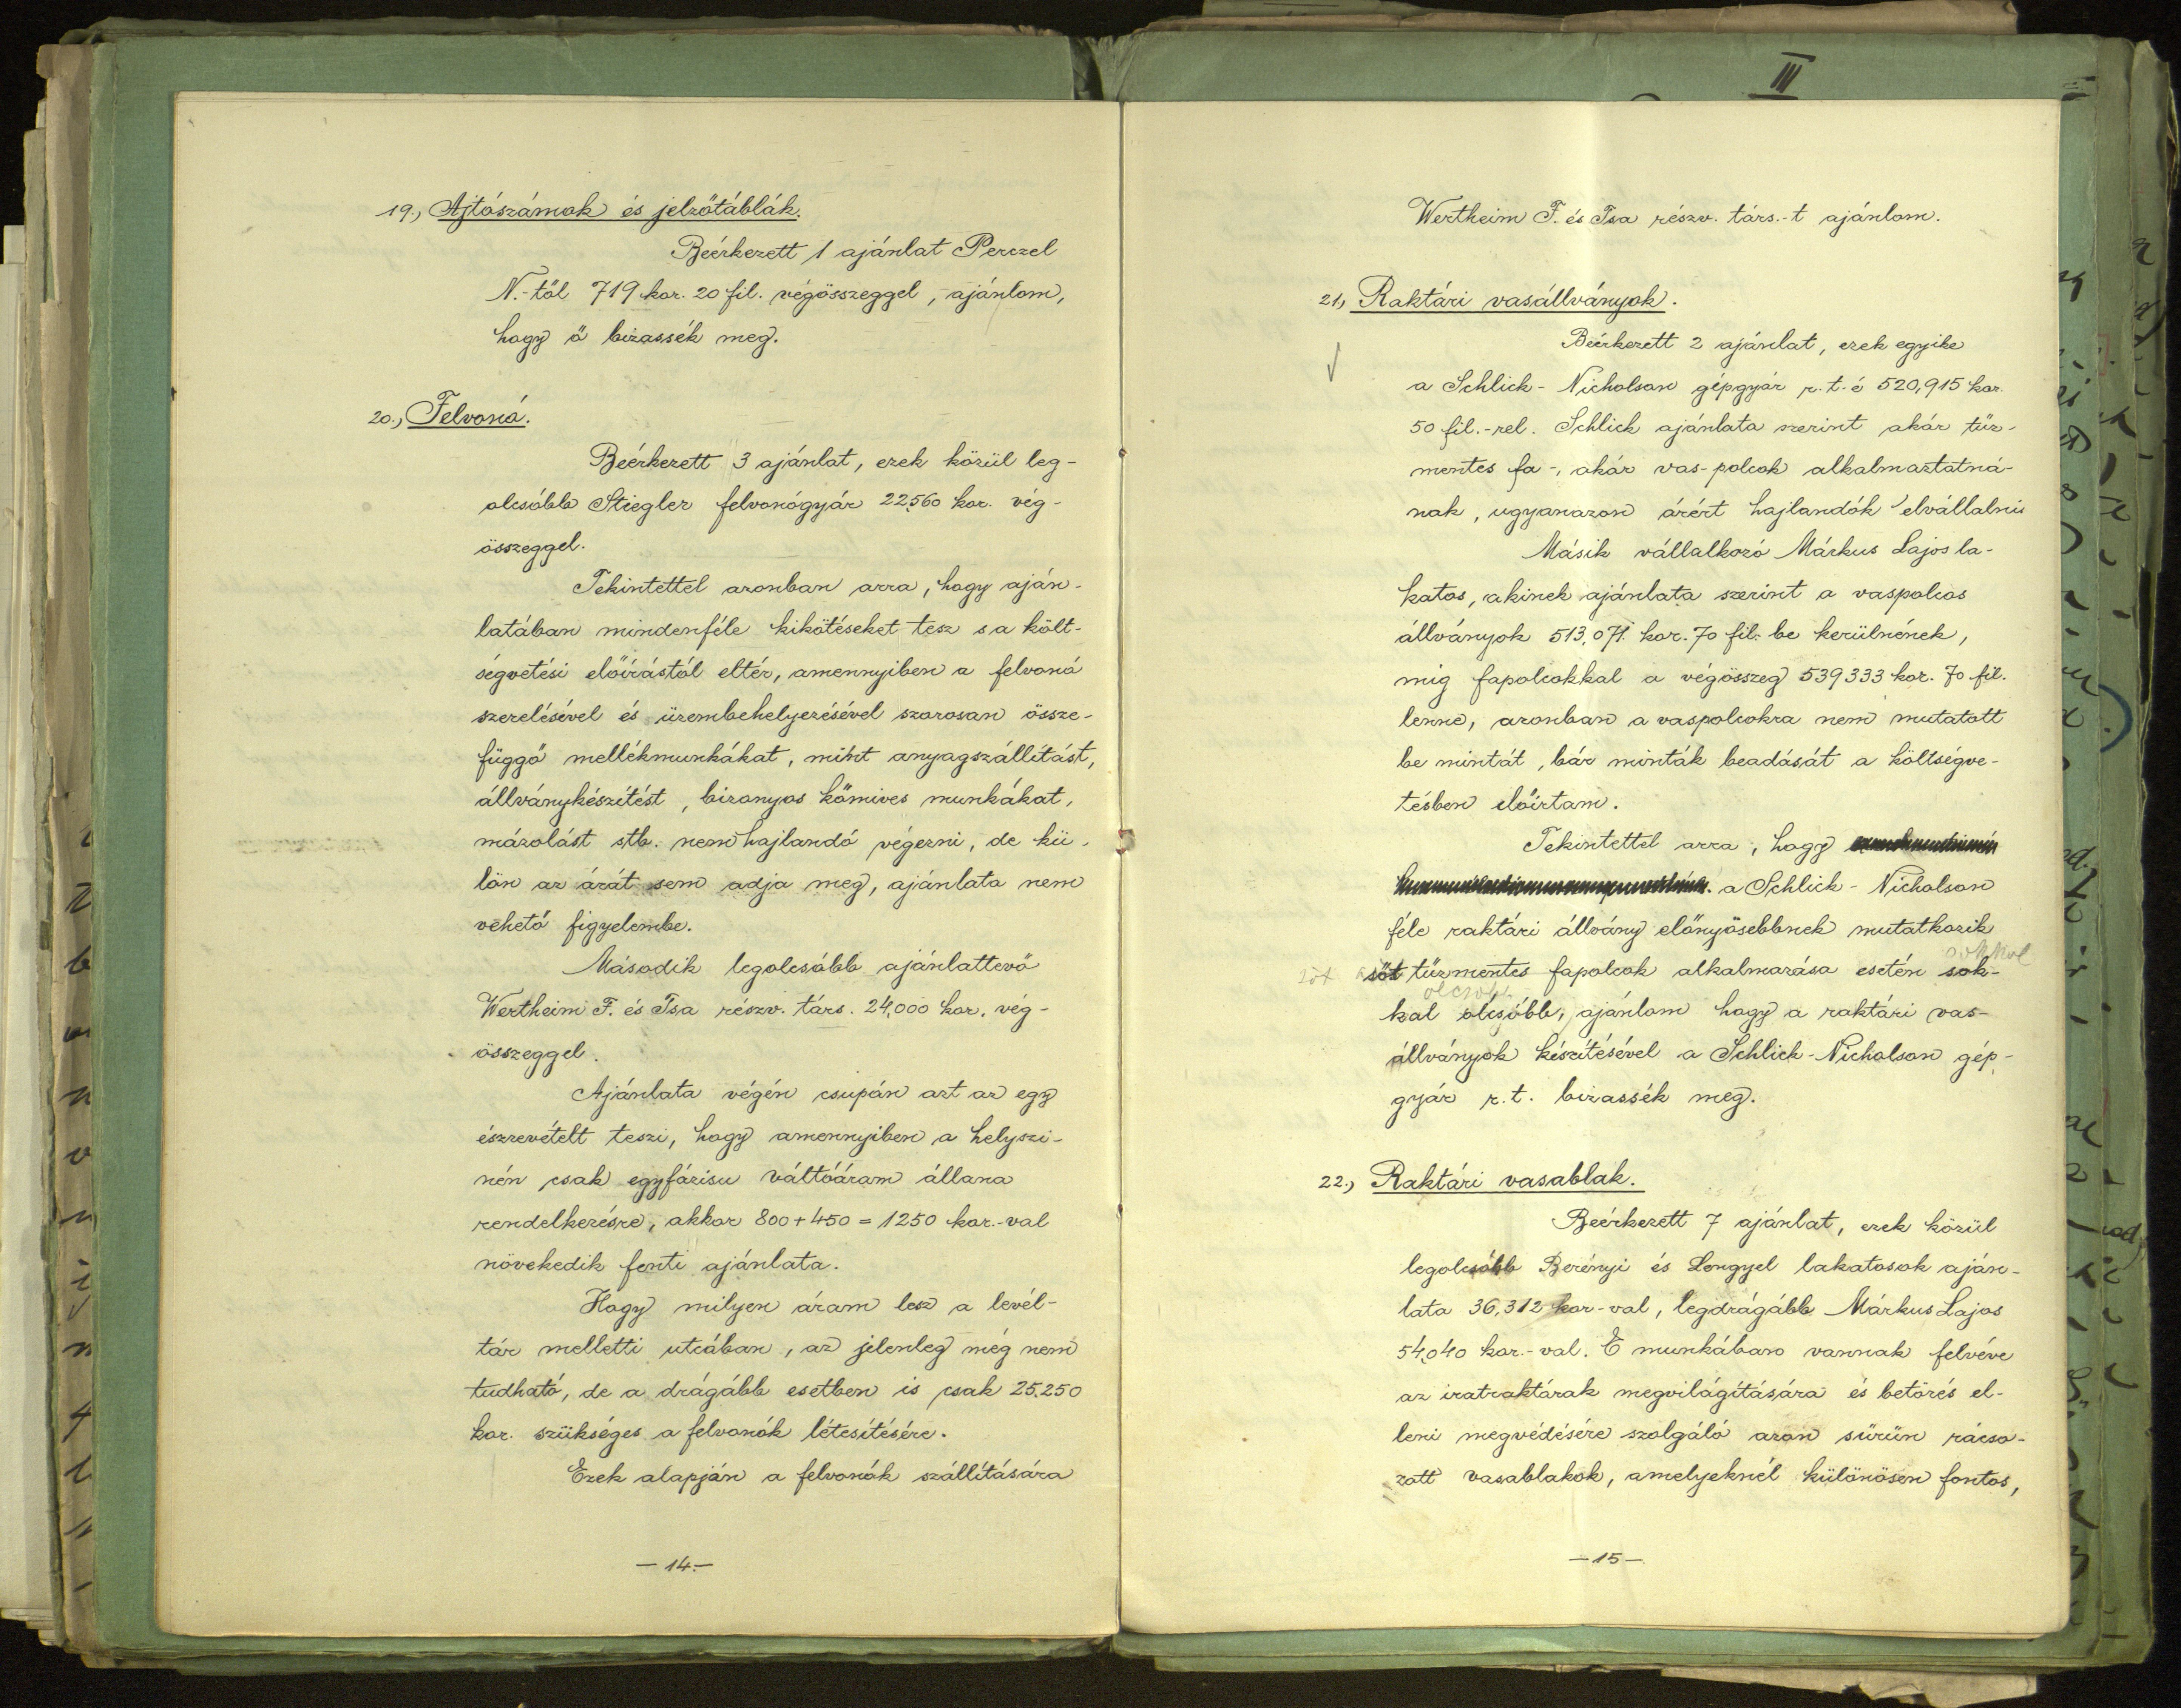 19., Ajtószámok és jelzőtáblák.
Beérkezett 1 ajánlat Perczel
N.-től 719 kor. 20 fil. végösszeggel, ajánlom,
hogy ő bizassék meg.
20., Felvonó.
Beérkezett 3 ajánlat, ezek közül leg-
olcsóbb Stiegler felvonógyár 22,560 kor. vég-
összeggel.
Tekintettel azonban arra, hogy aján-
latában mindenféle kikötéseket tesz s a költ-
ségvetési előírástól eltér, amennyiben a felvonó
szerelésével és üzembehelyezésével szorosan össze-
függő mellékmunkákat, mint anyagszállítást,
állványkészítést, bizonyos kőmives munkákat,
mázolást stb. nem hajlandó végezni, de kü-
lön az árát sem adja meg, ajánlata nem
vehető figyelembe.
Második legolcsóbb ajánlattevő
Wertheim F. és Tsa részv. társ. 24,000 kor. vég-
összeggel.
Ajánlata végén csupán azt az egy
észrevételt teszi, hogy amennyiben a helyszi-
nén csak egyfázisu váltóáram állana
rendelkezésre, akkor 800+450=1250 kor.-val
növekedik fenti ajánlata.
Hogy milyen áram lesz a levél-
tár melletti utcában, az jelenleg még nem
tudható, de a drágább esetben is csak 25.250
kor. szükséges a felvonók létesítésére.
Ezek alapján a felvonók szállítására
—14.—
III
Wertheim F. és Tsa részv. társ.-t ajánlom.
21., Raktári vasállványok.
Beérkezett 2 ajánlat, ezek egyike
a Schlick-Nicholson gépgyár r.t.-é 520,915 kor.
50 fil.-rel. Schlick ajánlata szerint akár tűz-
mentes fa-, akár vas-polcok alkalmaztatná-
nak, ugyanazon árért hajlandók elvállalni.
Másik vállalkozó Márkus Lajos la-
katos, akinek ajánlata szerint a vaspolcos
állványok 513,071. kor. 70 fil.-be kerülnének,
mig fapolcokkal a végösszeg 539333 kor. 70 fil.
lenne, azonban a vaspolcokra nem mutatott
be mintát, bár minták beadását a költségve-
tésben előirtam.
Tekintettel arra, hogy
a Schlick-Nicholson
féle raktári állvány előnyösebbnek mutatkozik
sokkal
sőt sőt tűzmentes fapolcok alkalmazása esetén sok-
olcsóbb
kal olcsóbb, ajánlom hogy a raktári vas-
állványok készítésével a Schlick-Nicholson gép-
gyár r.t. bizassék meg.
22., Raktári vasablak.
Beérkezett 7 ajánlat, ezek közül
legolcsóbb Berényi és Lengyel lakatosok aján-
lata 36,312 kor-val, legdrágább Márkus Lajos
54,040 kor.-val. E munkában vannak felvéve
az iratraktárak megvilágítására és betörés el-
leni megvédésére szolgáló azon sürün rácso-
zott vasablakok, amelyeknél különösen fontos,
—15—